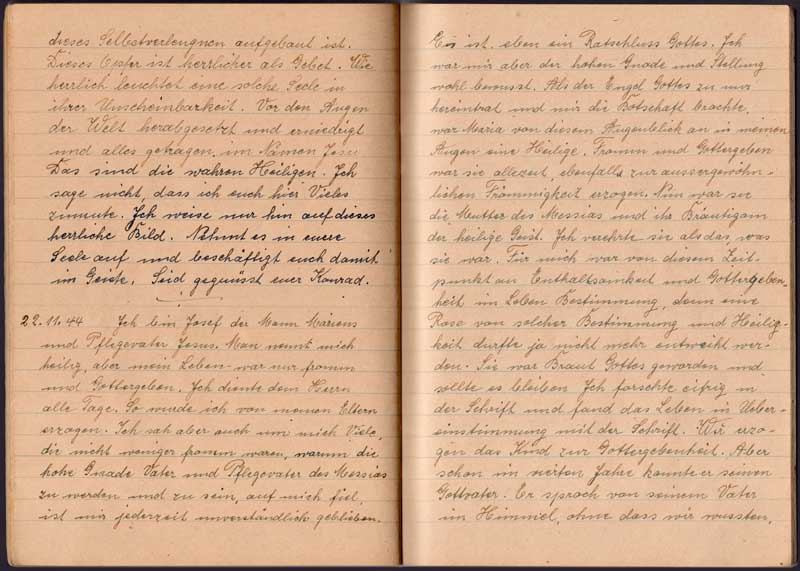 dieses Selbstverleugnen aufgebaut ist.
Dieses Opfer ist herrlicher als Gebet. Wie
herrlich leuchtet eine solche Seele in
ihrer Unscheinbarkeit. Vor den Augen
der Welt herabgesetzt und erniedrigt
und alles getragen im Namen Jesu
Das sind die wahren Heiligen. Ich
sage nicht, dass ich euch hier Vieles
zumute. Ich weise nur hin auf dieses
herrliche Bild. Nehmt es in euere
Seele auf und beschäftigt euch damit
im Geiste. Seid gegrüsst euer Konrad.
22.11.44 Ich bin Josef der Mann Mariens
und Pflegevater Jesus. Man nennt mich
heilig, aber mein Leben war nur fromm
und Gottergeben. Ich diente dem Herrn
alle Tage. So wurde ich von meinen Eltern
erzogen. Ich sah aber auch um mich Viele,
die nicht weniger fromm waren, warum die
hohe Gnade Vater und Pflegevater des Messias
zu werden und zu sein, auf mich fiel,
ist mir jederzeit unverständlich geblieben.
Es ist eben ein Ratschluss Gottes. Ich
war mir aber der hohen Gnade und Stellung
wohl bewusst. Als der Engel Gottes zu mir
hereintrat und mir die Botschaft brachte,
war Maria von diesem Augenblick an in meinen
Augen eine Heilige. Fromm und Gottergeben
war sie allezeit, ebenfalls zur aussergewöhn-
lichen Frömmigkeit erzogen. Nun war sie
die Mutter des Messias und ihr Bräutigam
der heilige Geist. Ich verehrte sie als das, was
sie war. Für mich war von diesem Zeit-
punkt an Enthaltsamkeit und Gottergeben-
heit im Leben Bestimmung, denn eine
Rose von solcher Bestimmung und Heilig-
keit durfte ja nicht mehr entweiht wer-
den. Sie war Braut Gottes geworden und
sollte es bleiben Ich forschte eifrig in
der Schrift und fand das Leben in Ueber-
einstimmung mit der Schrift. Wir erzo-
gen das Kind zur Gottergebenheit. Aber
schon im zweiten Jahre kannte er seinen
Gottvater. Er sprach von seinem Vater
im Himmel, ohne dass wir wussten,